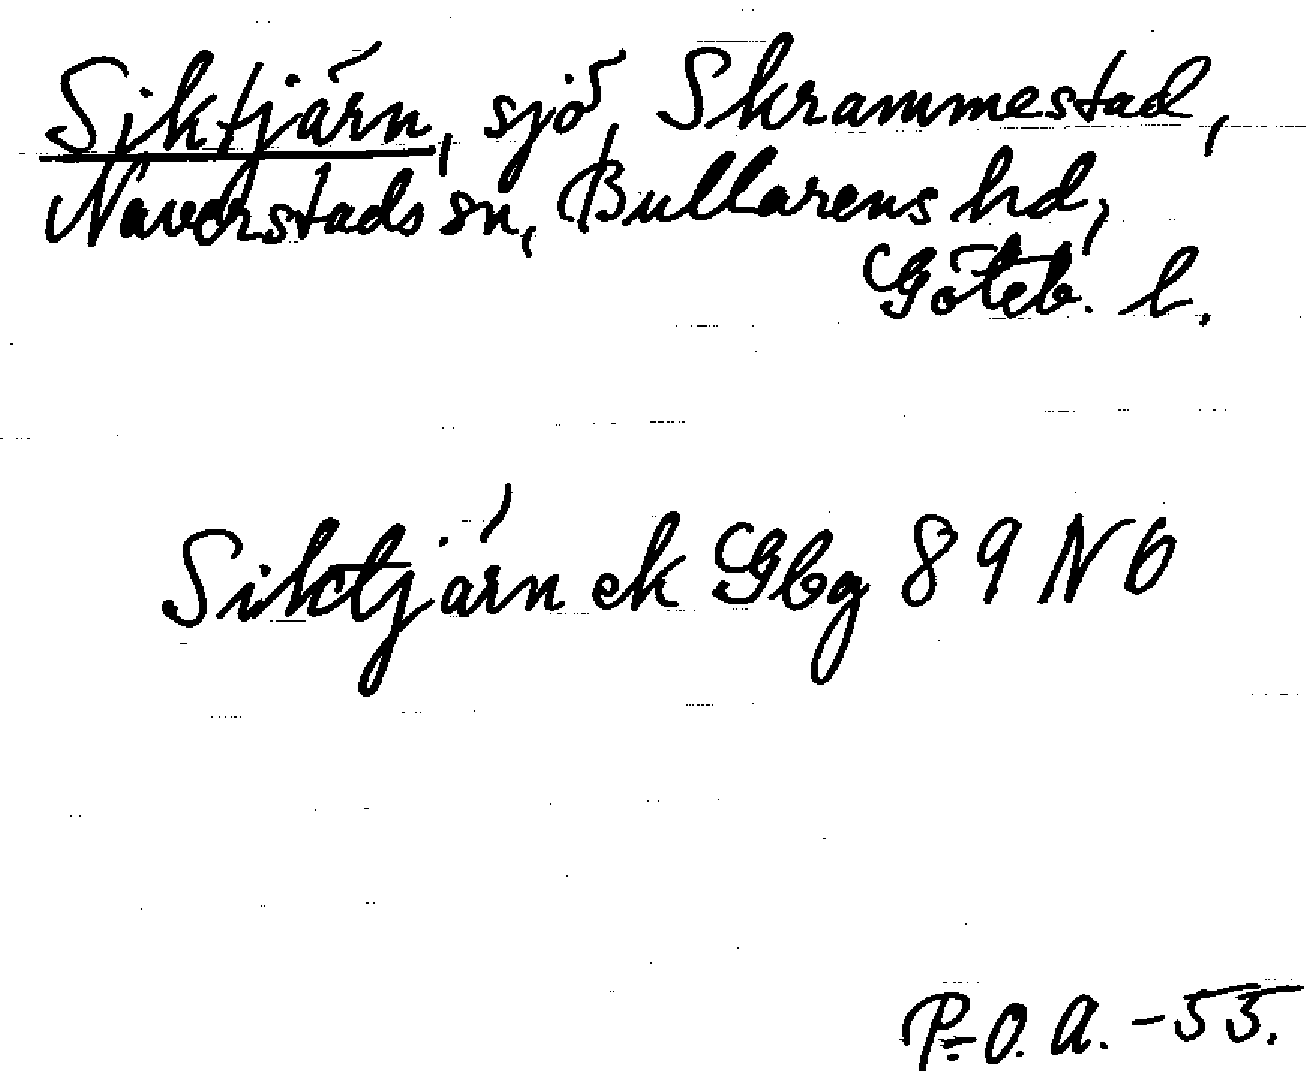 Siktjärn, sjö, Skrammestad,
Naverstads sn, Bullarens hd,
Göteb. l.
Siktjärn ek Gbg 89 NO
P.-O. A. -55.